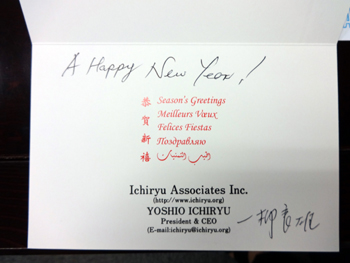 A Happy New Year!
恭賀新禧
Season's Greetings
Meilleurs Vœux
Felices Fiestas
Поздравляю
Ichiryu Associates Inc.
(http://www.ichiryu.org)
YOSHIO ICHIRYU
President & CEO
(E-mail:ichiryu@ichiryu.org)
一柳良雄